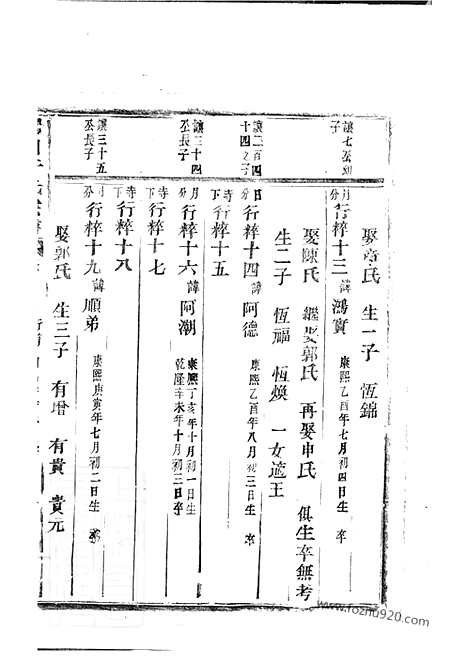 娶　氏　生一子　恆錦
讓七公幼子
月分行粹十三諱鴻寳　康熙乙酉年七月初四日生　卒
娶陳氏　繼娶郭氏　再娶申氏　俱生卒無考
生二子　恆福　恆煥　一女適王
讓二百四十四之子
日分行粹十四諱阿德　康熙乙酉年八月初三日生　卒
寺下行粹十五
讓三十四公長子
月分行粹十六諱阿潮　康熙丁亥年十月初一日生
乾隆辛未年十月初三日卒
寺下行粹十七
寺下行粹十八
讓三十五公長子
月分行粹十九諱順弟　康熙庚寅年七月初二日生　卒
娶郭氏　生三子　有增　有貴　貴元
www.fozhu920.com